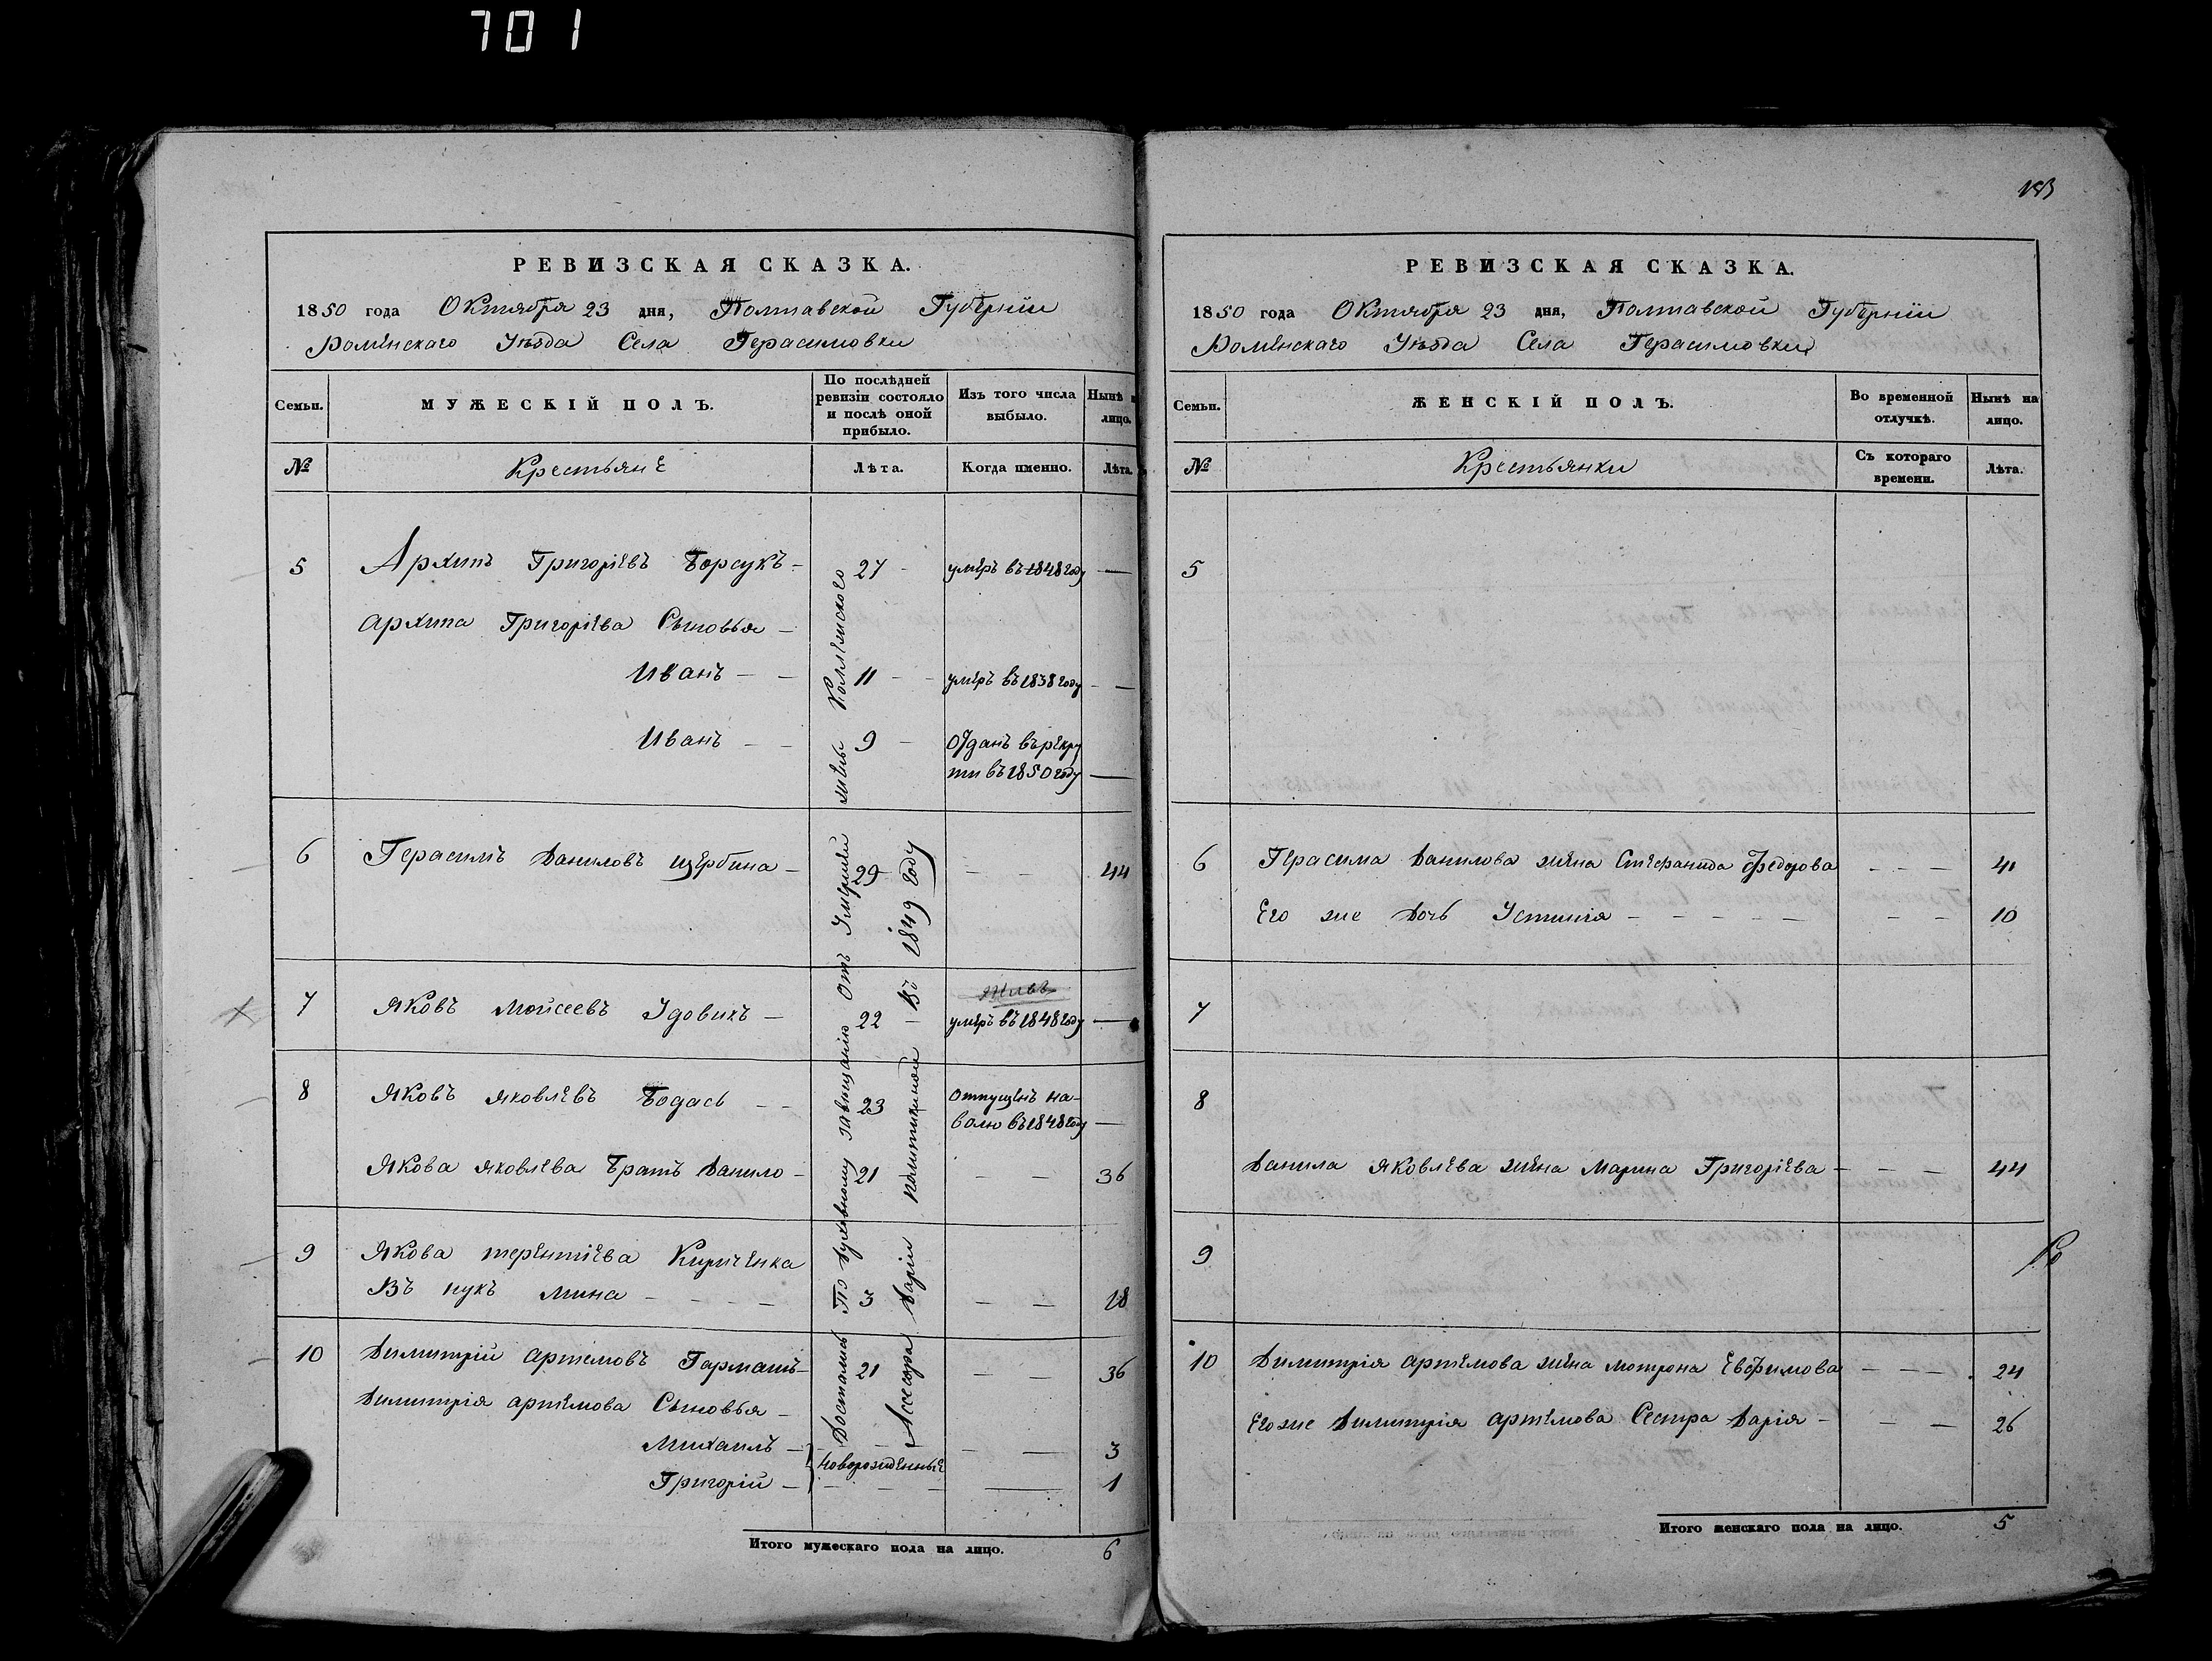 701
РЕВИЗСКАЯ СКАЗКА.
1850 года Октября 23 дня, Полтавской Губерніи
Роменскаго Уѣзда Села Герасимовки
Семьи.
МУЖЕСКІЙ ПОЛЪ.
По послѣдней
ревизіи состояло
и послѣ оной
прибыло.
Изъ того числа
выбыло.
Нынѣ н
лицо.
№
Крестьяне
Лѣта.
Когда именно.
Лѣта.
5 Архипъ Григоріевъ Борсукъ - 27 - умеръ въ 1848 году —
Архипа Григоріева Сыновья -
Иванъ - - 11 - - умеръ въ 1838 году - —
Иванъ - - 9 - Отданъ въ рекру
ти въ 1850 году —
6 Герасимъ Даниловъ Щербина - 29 - - 44
7 Яковъ Мойсеевъ Удовикъ - 22 - живъ
умеръ въ 1848 году —
8 Яковъ Яковлевъ Бодась - - 23 Отпущенъ на-
волю въ 1848 году —
Якова Яковлева Братъ Данило - 21 - - 36
9 Якова Терентіева Кириченка
Внукъ Мина - - - - 3 - - 18
10 Димитрій Артемовъ Гармашъ - 21 - - 36
Димитрія Артемова Сыновья -
Михаилъ - - - 3
Новорожденные
Григорій - - - - — 1
Достались По Духовному завещанію Отъ Умершей жены Коллежского
Ассесора Даріи Политикиной Въ 1849 году
Итого мужескаго пола на лицо. 6
РЕВИЗСКАЯ СКАЗКА.
1850 года Октября 23 дня, Полтавской Губерніи
Роменскаго Уѣзда Села Герасимовки
Семьи.
ЖЕНСКІЙ ПОЛЪ.
Во временной
отлучкѣ.
Нынѣ на
лицо.
№
Крестьянки
Съ котораго
времени.
Лѣта.
5
6 Герасима Данилова жена Стефанида Федорова - - - 41
Его же Дочь Устинія - - - - - - - 10
7
8
Данила Яковлева жена Марина Григоріева - - - 44
9
10 Димитрія Артемова жена Мотрона Евфимова - - - 24
Его же Димитрія Артемова Сестра Дарія - - - 26
Итого женскаго пола на лицо. 5